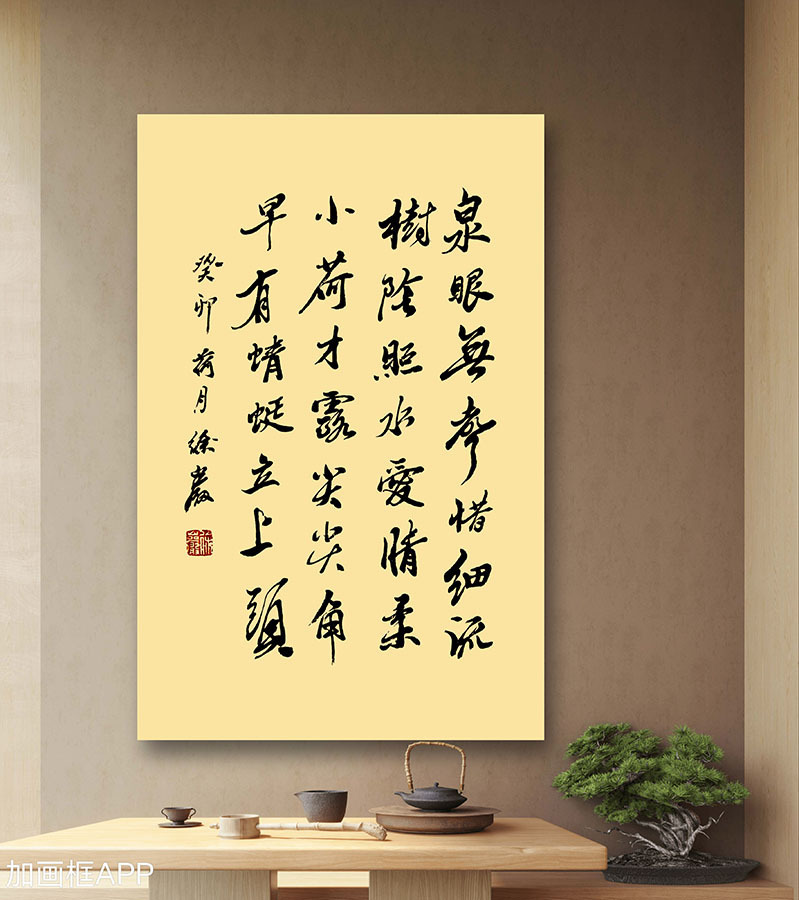 泉眼無聲惜細流
樹陰照水愛晴柔
小荷才露尖尖角
早有蜻蜓立上頭
癸卯荷月徐嚴
加画框APP